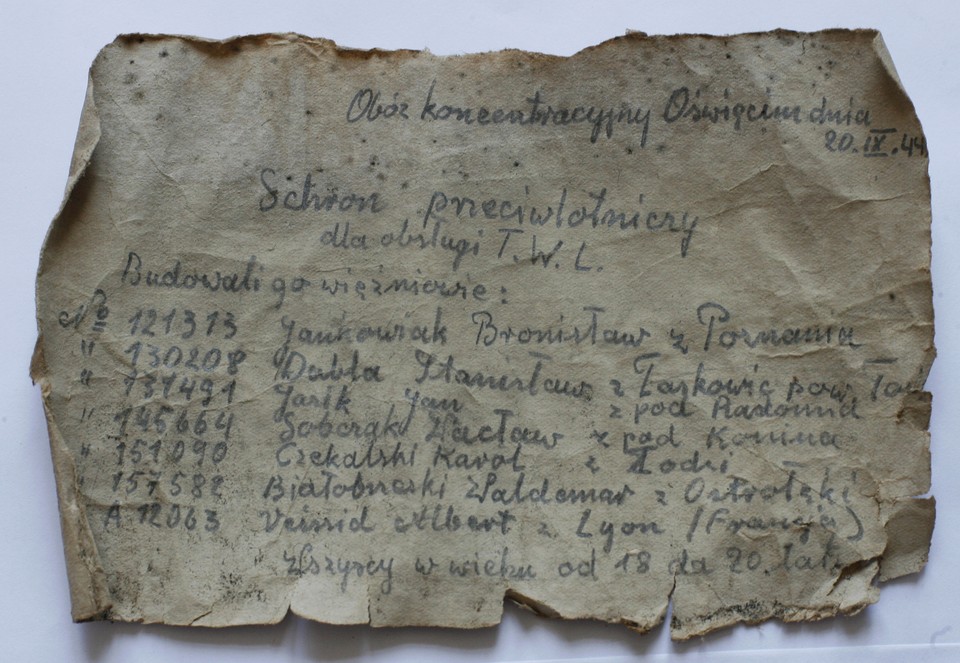 Obóz koncentracyjny Oświęcim dnia
20.IX.44
Schron przeciwlotniczy
dla obsługi T.W.L.
Budowali go więźniowie:
No 121313 Jankowiak Bronisław z Poznania
" 130208 Dubla Stanisław z Łaskowic pow. Ła
" 131491 Jasik Jan z pod Radomia
" 145664 Sobczak Wacław z pod Konina
" 151090 Czekalski Karol z Łodzi
" 157582 Białobrzeski Waldemar z Ostrołęki
A 12063 Veissid Albert z Lyon (Francja)
Wszyscy w wieku od 18 do 20. lat